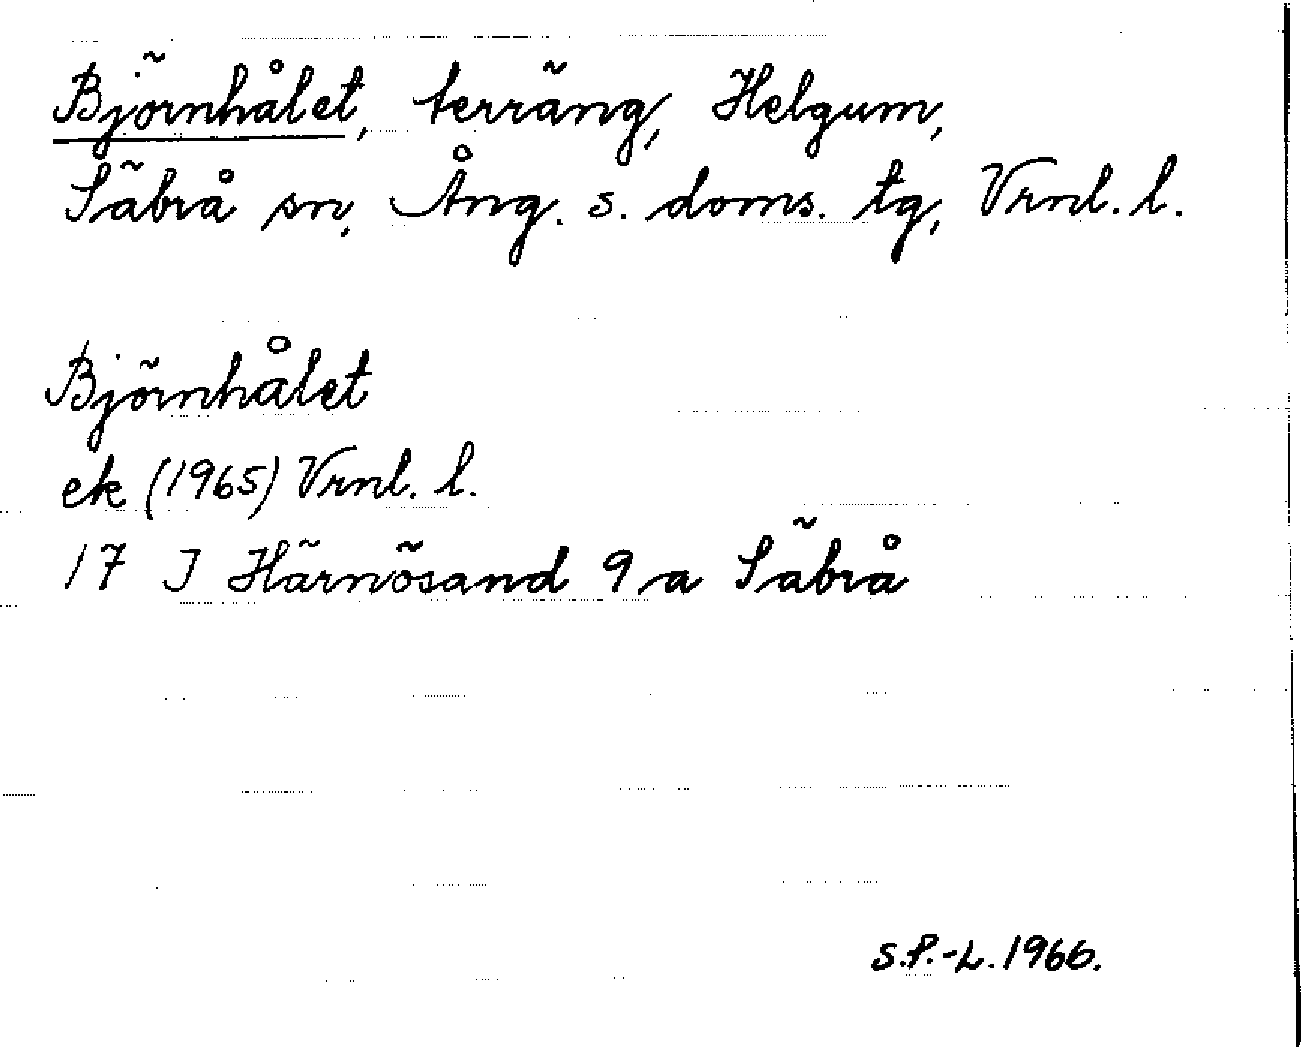 Björnhålet, terräng, Helgum,
Säbrå sn, Ång. s. doms. tg, Vrnl. l.
Björnhålet
ek (1965) Vrnl. l.
17 J Härnösand 9 a Säbrå
S.P.-L. 1966.